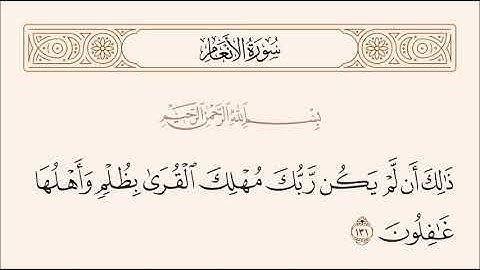 سُورَةُ الأَنْعَامِ
بِسْمِ اللَّهِ الرَّحْمَٰنِ الرَّحِيمِ
ذَٰلِكَ أَن لَّمْ يَكُن رَّبُّكَ مُهْلِكَ ٱلْقُرَىٰ بِظُلْمٍ وَأَهْلُهَا
غَٰفِلُونَ ١٣١